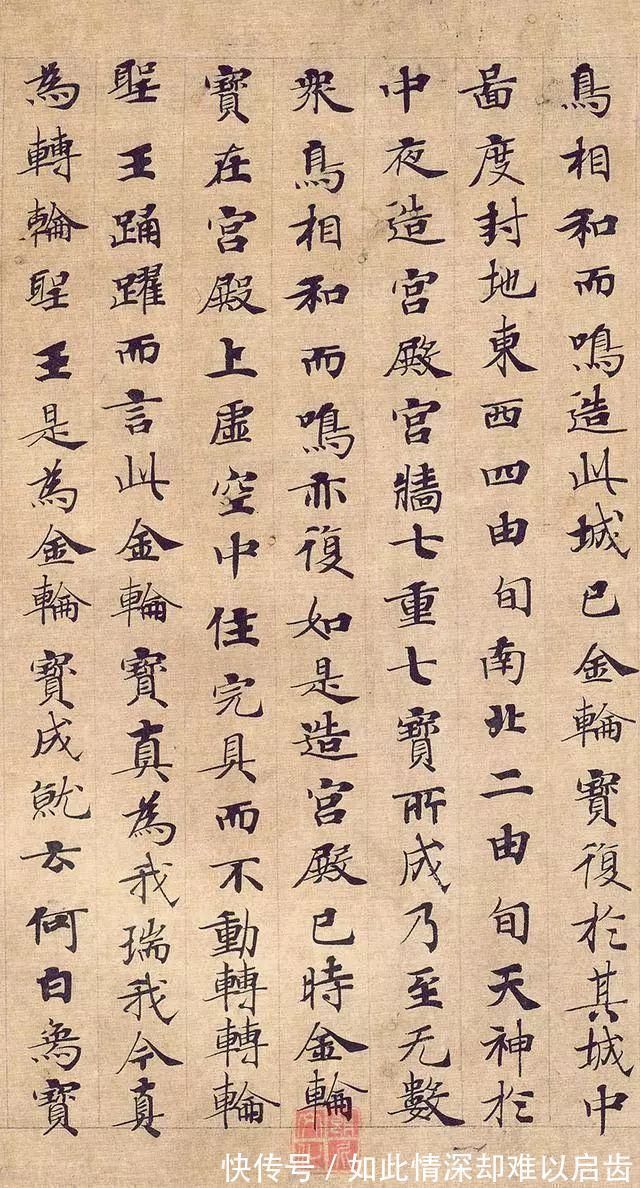 鳥相和而鳴造此城已金輪寳復於其城中
啚度封地東西四由旬南北二由旬天神於
中夜造宮殿宮牆七重七寳所成乃至无數
衆鳥相和而鳴亦復如是造宮殿已時金輪
寳在宮殿上虛空中住完具而不動轉轉輪
聖王踊躍而言此金輪寳真為我瑞我今真
為轉輪聖王是為金輪寳成就云何白象寳
快传号 / 如此情深却难以启齿